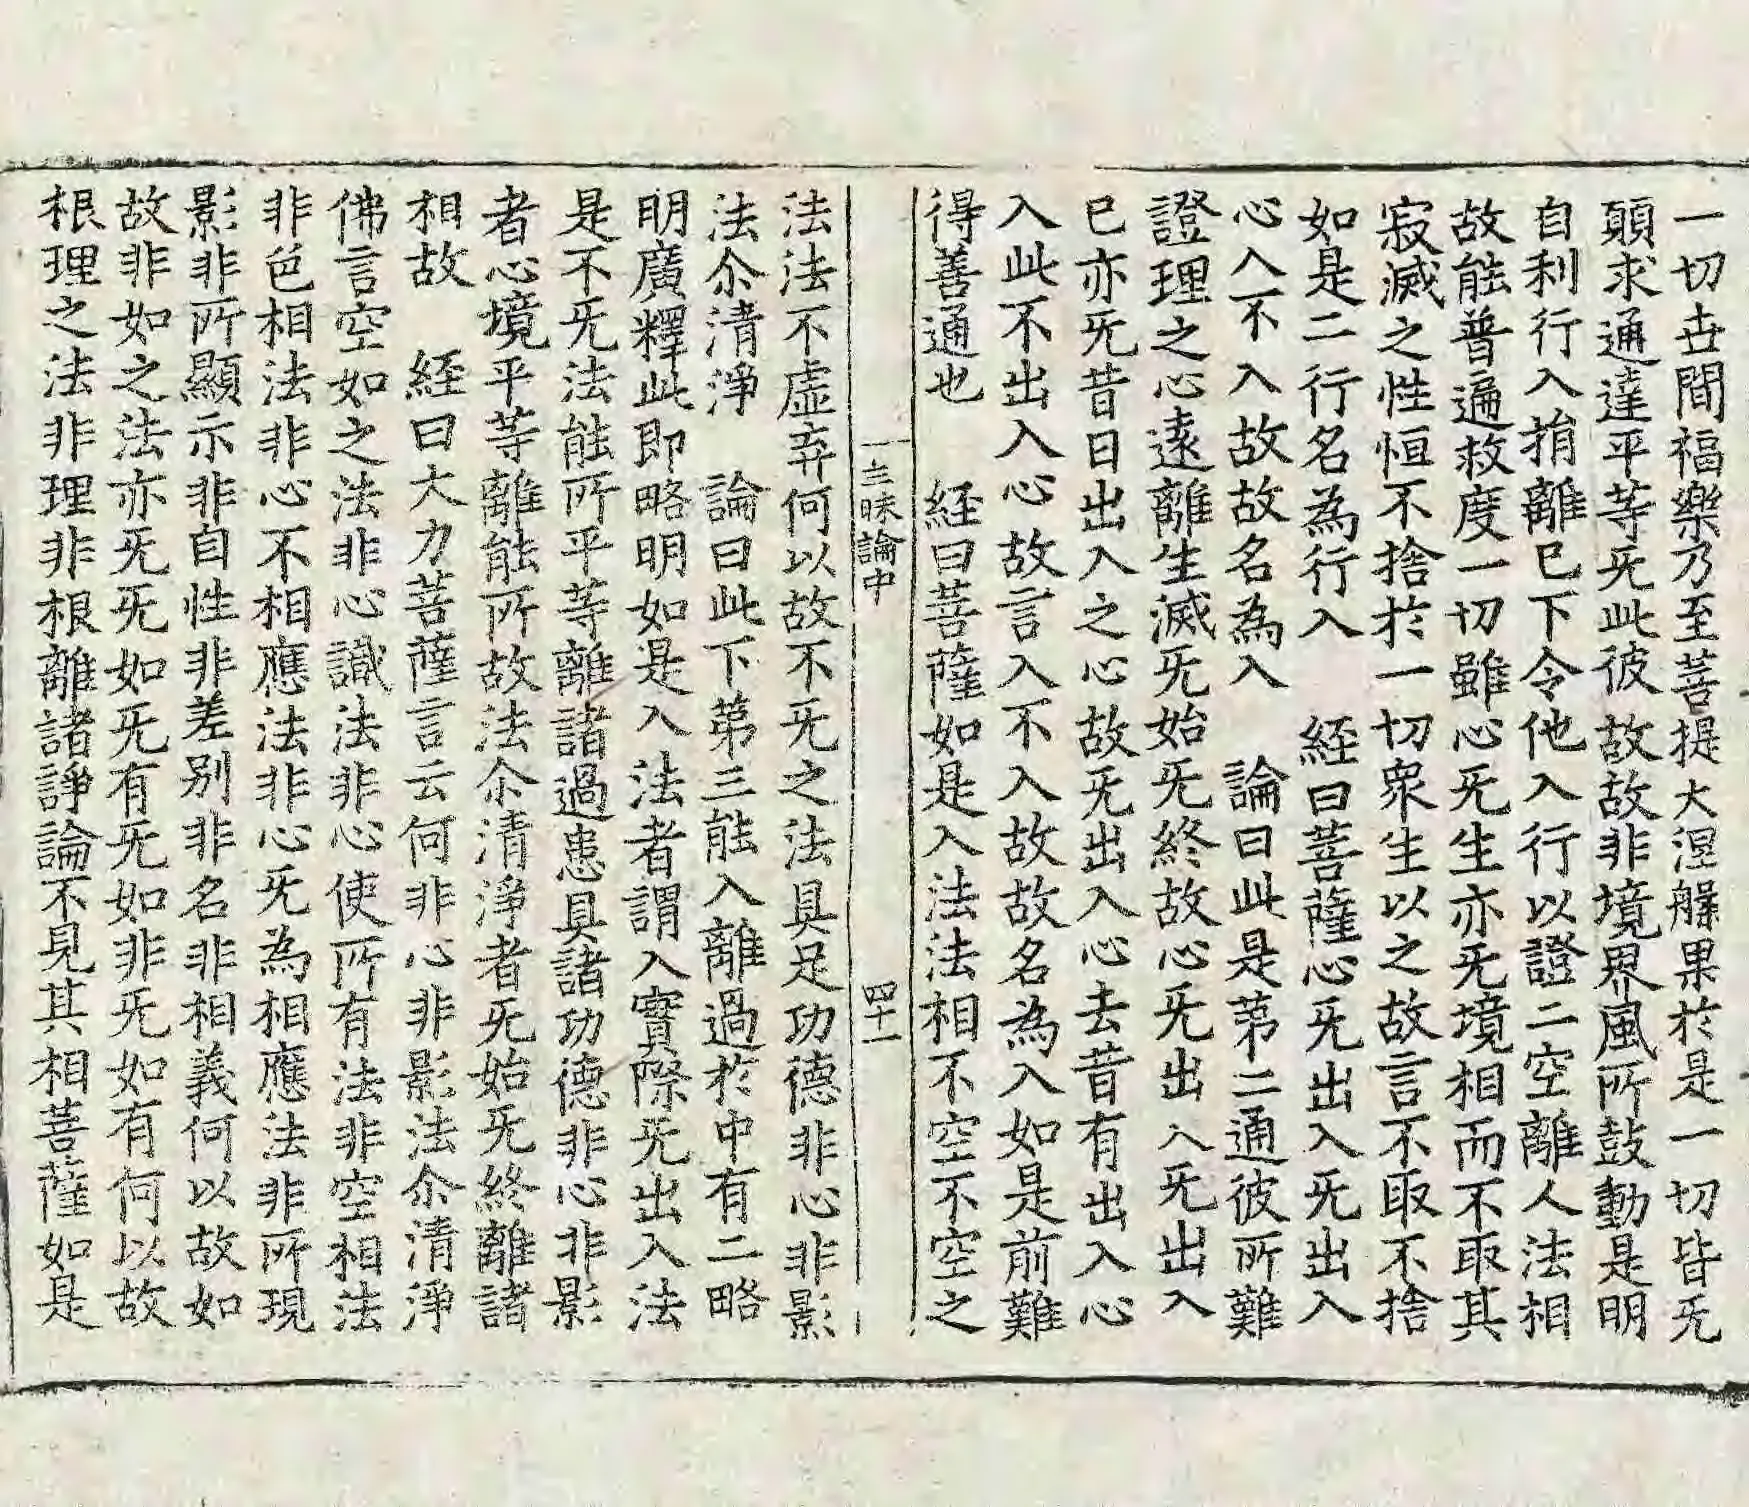 一切世間福樂乃至菩提大涅槃果於是一切皆旡
願求通達平等旡此彼故故非境界風所鼓動是明
自利行入捐離已下令他入行以證二空離人法相
故能普遍救度一切雖心旡生亦旡境相而不取其
寂滅之性恒不捨於一切衆生以之故言不取不捨
如是二行名為行入　経曰菩薩心旡出入旡出入
心入不入故故名為入　論曰此是第二通彼所難
證理之心遠離生滅旡始旡終故心旡出入旡出入
已亦旡昔日出入之心故旡出入心去昔有出入心
入此不出入心故言入不入故故名為入如是前難
得善通也　経曰菩薩如是入法法相不空不空之
三昧論中　四十一
法法不虛弃何以故不旡之法具足功德非心非影
法尒清淨　論曰此下第三能入離過於中有二略
明廣釋此即略明如是入法者謂入實際旡出入法
是不旡法能所平等離諸過患具諸功德非心非影
者心境平等離能所故法尒清淨者旡始旡終離諸
相故　経曰大力菩薩言云何非心非影法尒清淨
佛言空如之法非心識法非心使所有法非空相法
非色相法非心不相應法非心旡為相應法非所現
影非所顯示非自性非差别非名非相義何以故如
故非如之法亦旡旡如旡有旡如非旡如有何以故
根理之法非理非根離諸諍論不見其相菩薩如是